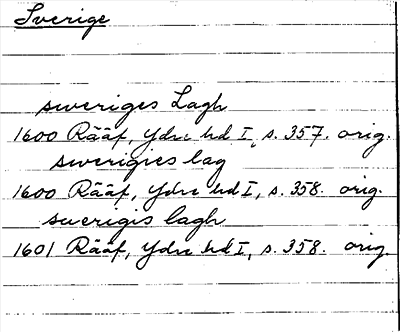 Sverige
sweriges Lagh
1600 Rääf, Ydre hd I, s. 357. orig.
swerigies lag
1600 Rääf, Ydre hd I, s. 358. orig.
swerigis lagh
1601 Rääf, Ydre hd I, s. 358. orig